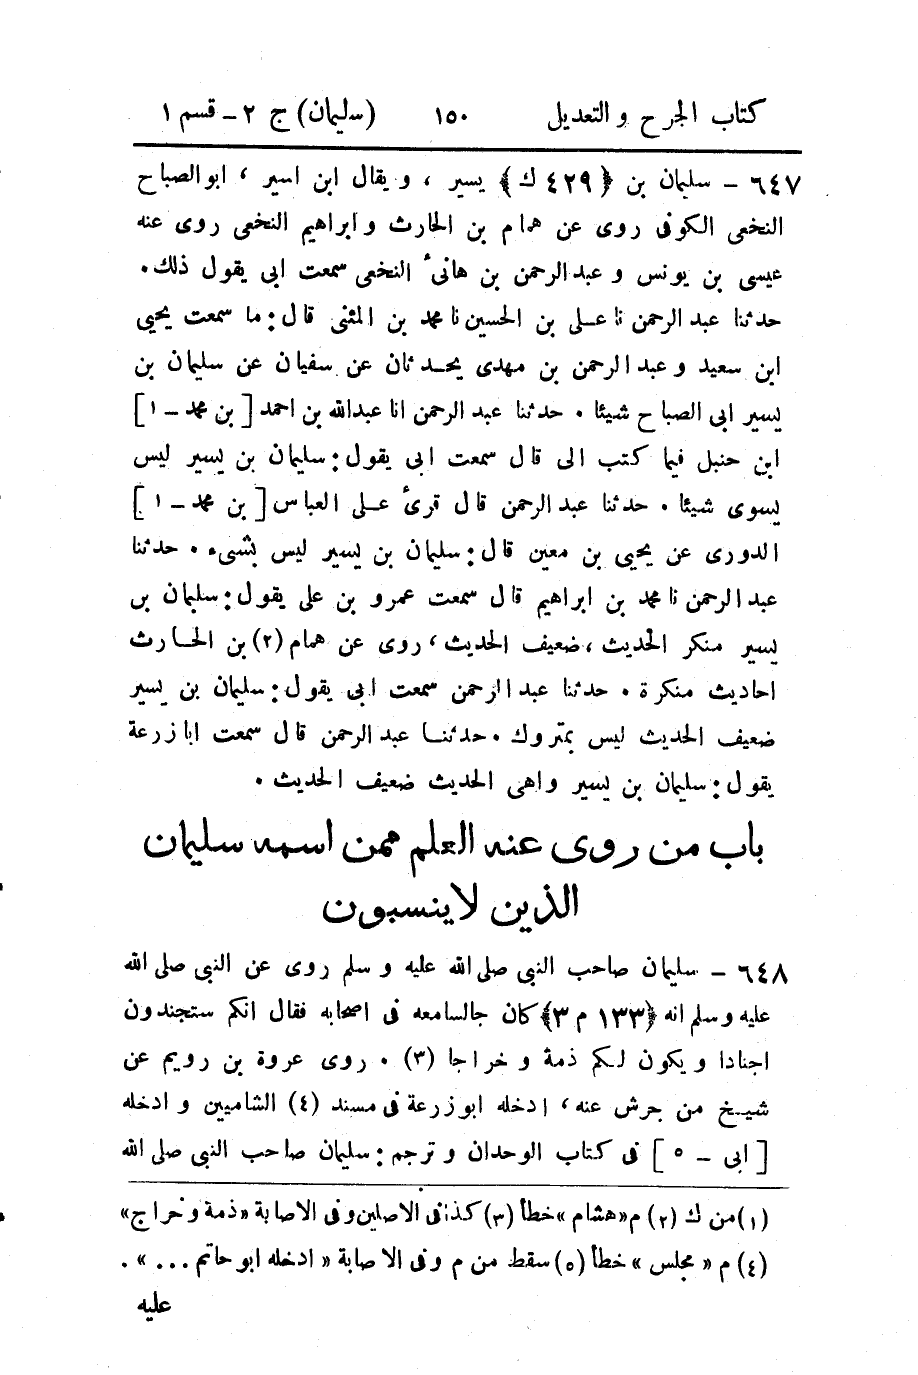 كتاب الجرح والتعديل ١٥٠ (سليمان) ج ٢ - قسم ١
٦٤٧ - سليمان بن ﴿٤٢٩ ك﴾ يسير ، ويقال ابن اسير ، ابو الصباح
النخعى الكوفى روى عن همام بن الحارث وابراهيم النخعى روى عنه
عيسى بن يونس وعبد الرحمن بن هانئ النخعى سمعت ابى يقول ذلك .
حدثنا عبد الرحمن نا على بن الحسين نا محمد بن المثنى قال : ما سمعت يحيى
ابن سعيد وعبد الرحمن بن مهدى يحدثان عن سفيان عن سليمان بن
يسير ابى الصباح شيئا . حدثنا عبد الرحمن انا عبد الله بن احمد [ بن محمد - ١ ]
ابن حنبل فيما كتب الى قال سمعت ابى يقول : سليمان بن يسير ليس
يسوى شيئا . حدثنا عبد الرحمن قال قرئ على العباس [ بن محمد - ١ ]
الدورى عن يحيى بن معين قال : سليمان بن يسير ليس بشىء . حدثنا
عبد الرحمن نا محمد بن ابراهيم قال سمعت عمرو بن على يقول : سليمان بن
يسير منكر الحديث ، ضعيف الحديث ، روى عن همام (٢) بن الحارث
احاديث منكرة . حدثنا عبد الرحمن سمعت ابى يقول : سليمان بن يسير
ضعيف الحديث ليس بمتروك . حدثنا عبد الرحمن قال سمعت ابا زرعة
يقول : سليمان بن يسير واهى الحديث ضعيف الحديث .
باب من روى عنه العلم ممن اسمه سليمان
الذين لاينسبون
٦٤٨ - سليمان صاحب النبى صلى الله عليه وسلم روى عن النبى صلى الله
عليه وسلم انه ﴿١٣٣ م ٣﴾ كان جالسا معه فى اصحابه فقال انكم ستجندون
اجنادا ويكون لكم ذمة وخراجا (٣) . روى عروة بن رويم عن
شيخ من جرش عنه ، ادخله ابو زرعة فى مسند (٤) الشاميين وادخله
[ ابى - ٥ ] فى كتاب الوحدان وترجم : سليمان صاحب النبى صلى الله
(١) من ك (٢) م « هشام » خطأ (٣) كذا فى الاصلين وفى الاصابة « ذمة وخراج »
(٤) م « مجلس » خطأ (٥) سقط من م وفى الاصابة « ادخله ابو حاتم ... » .
عليه